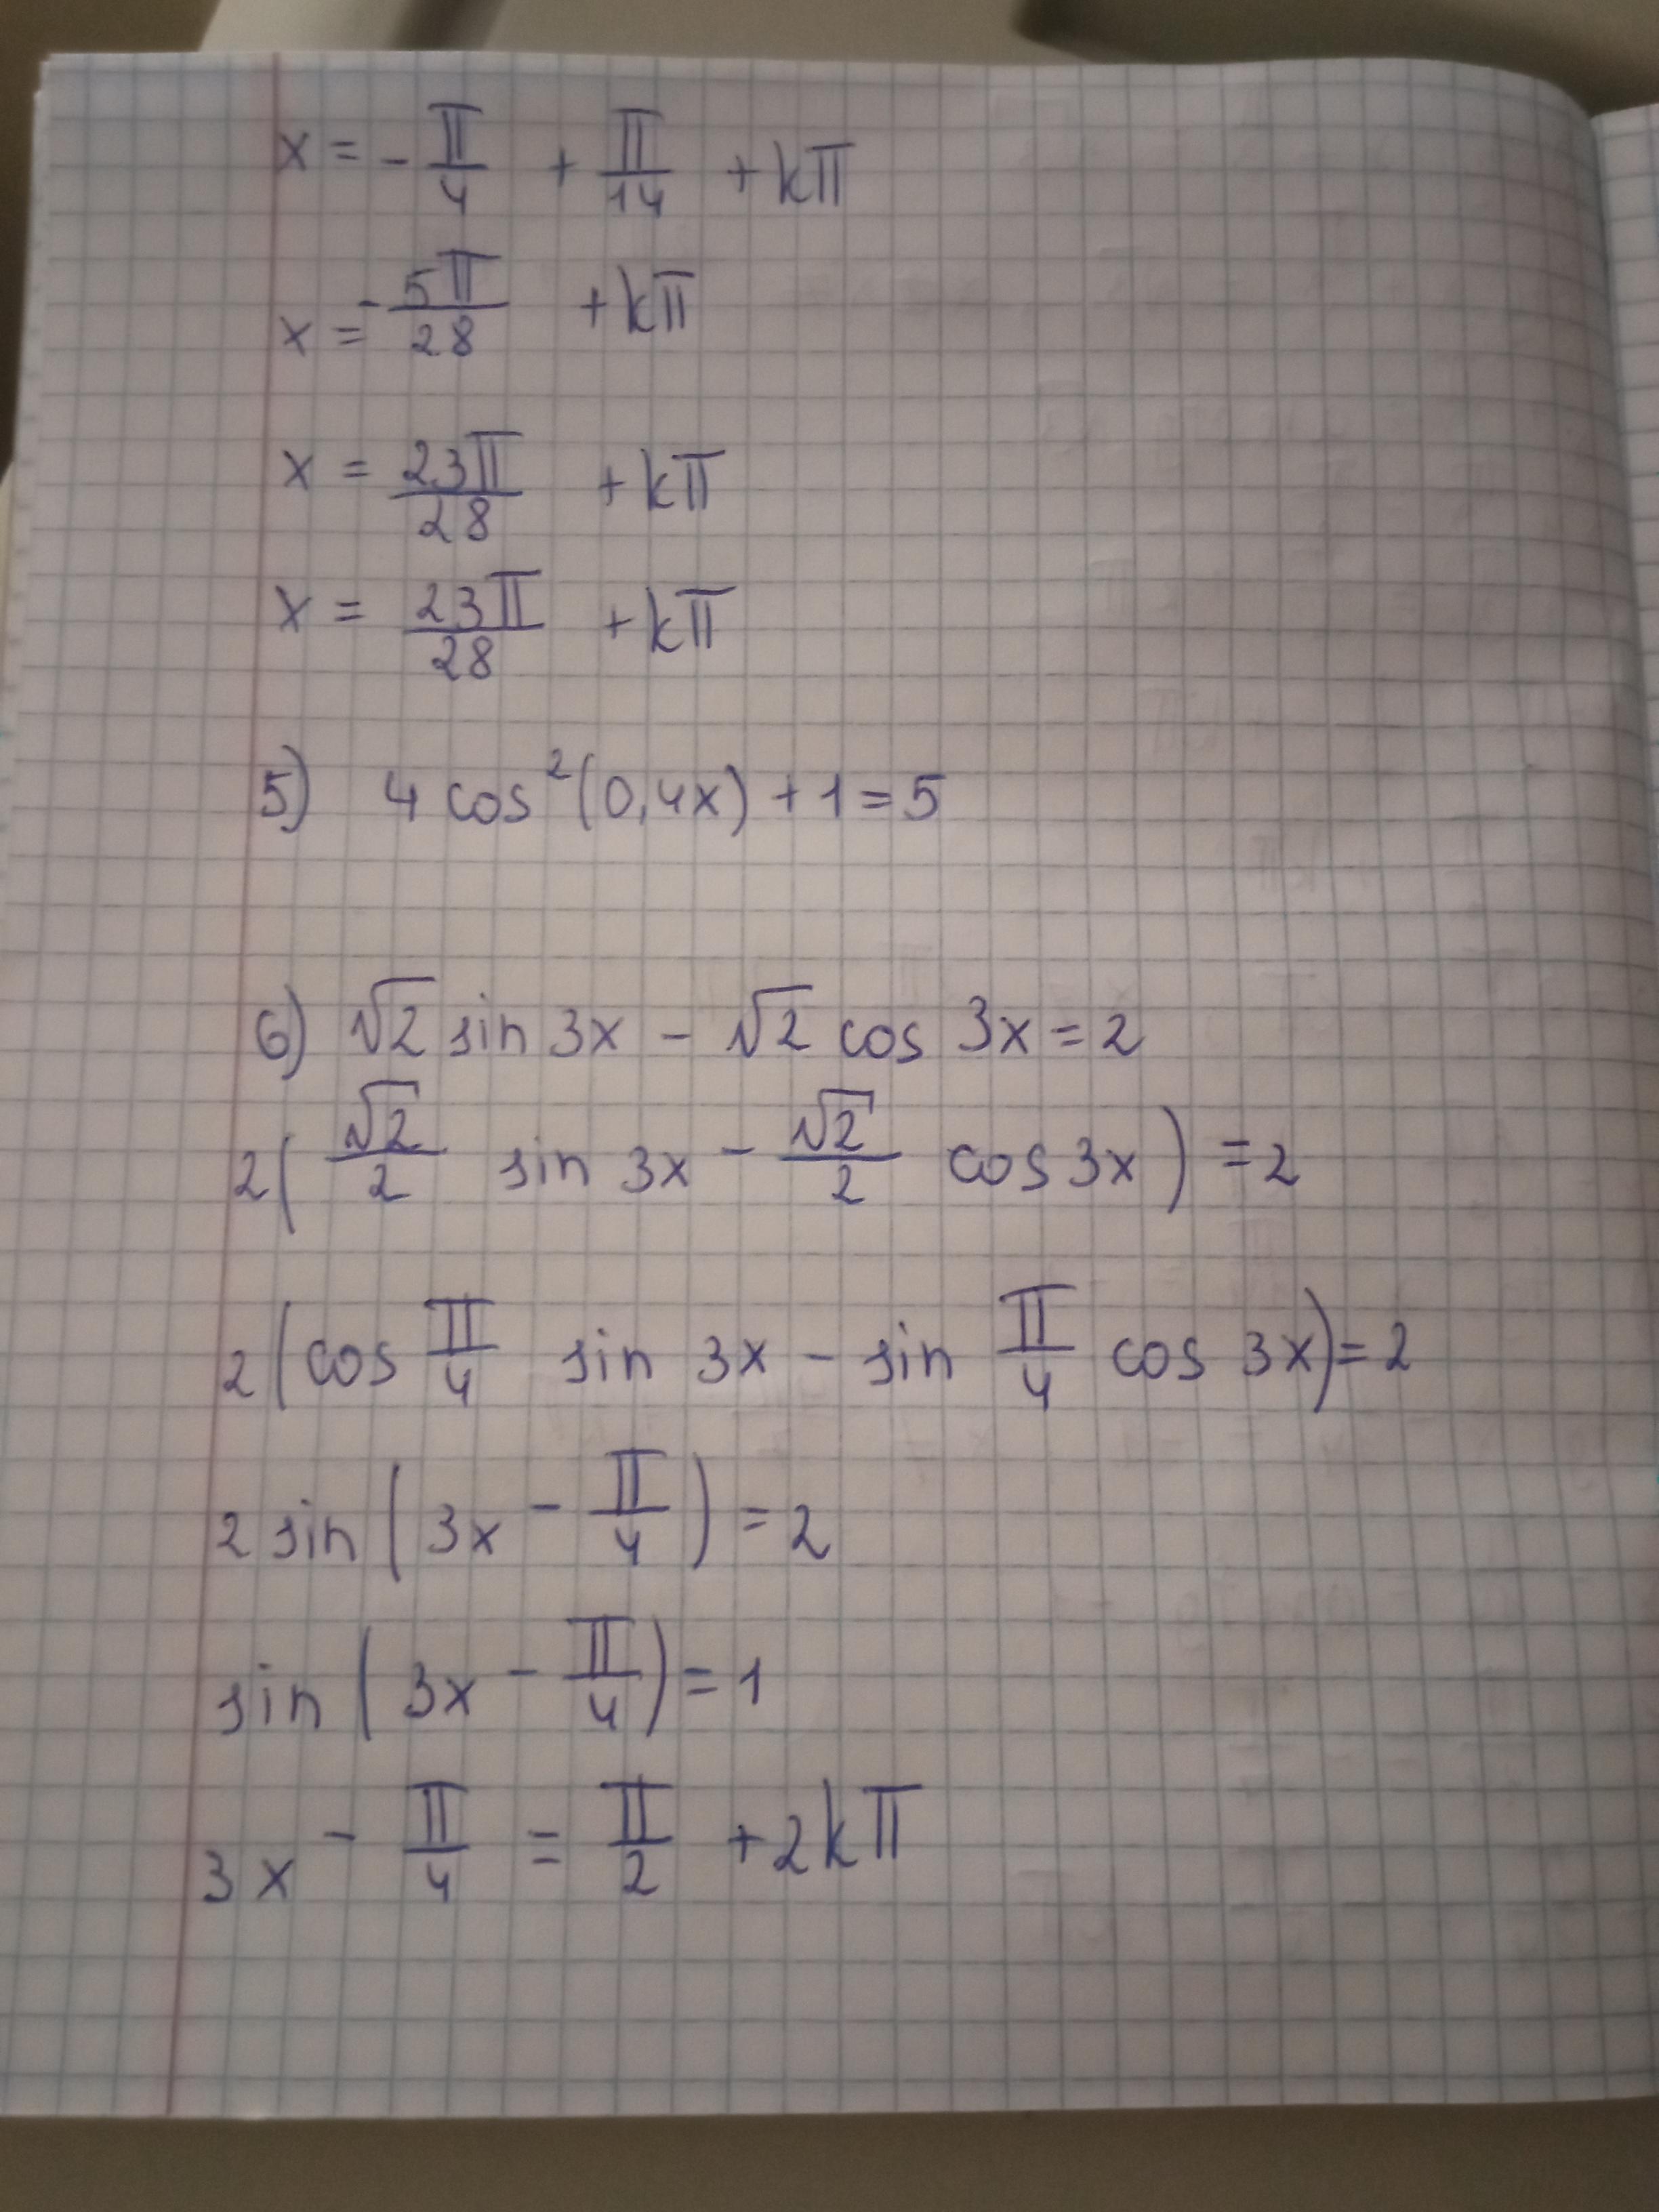 x = - π/4 + π/14 + kπ
x = - 5π/28 + kπ
x = 23π/28 + kπ
x = 23π/28 + kπ
5) 4 cos²(0,4x) + 1 = 5
6) √2 sin 3x - √2 cos 3x = 2
2( √2/2 sin 3x - √2/2 cos 3x ) = 2
2( cos π/4 sin 3x - sin π/4 cos 3x ) = 2
2 sin ( 3x - π/4 ) = 2
sin ( 3x - π/4 ) = 1
3x - π/4 = π/2 + 2kπ